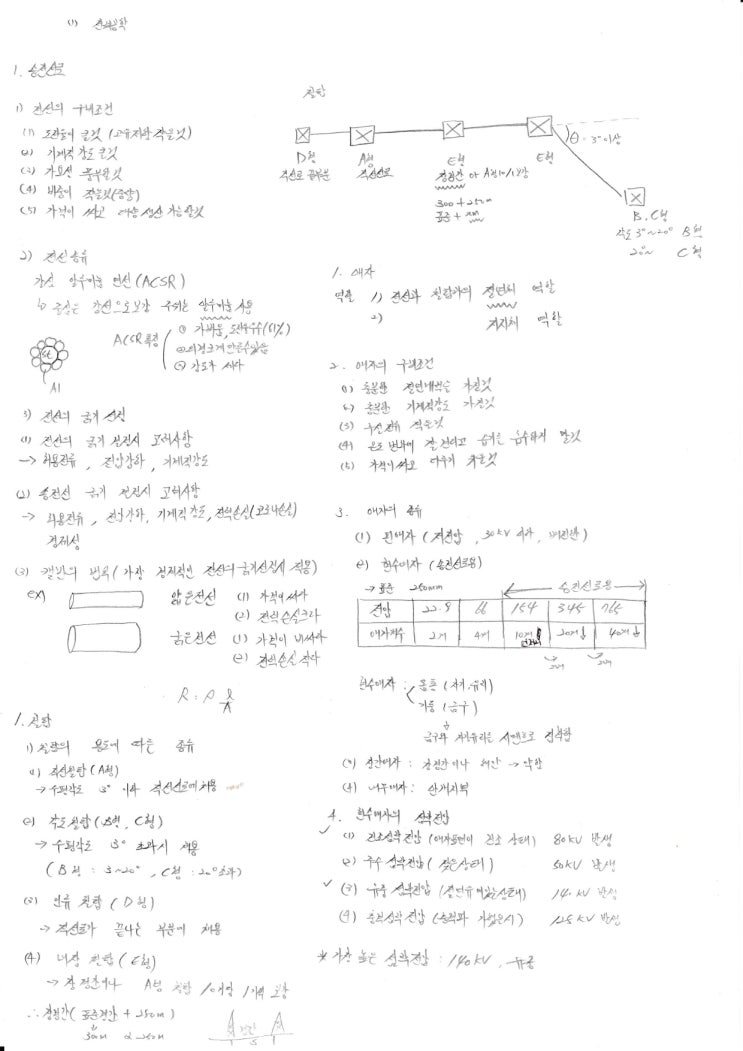 (1) 전력공학
1. 송전선로
1) 전선의 구비조건
(1) 도전율이 클것 (고유저항 작을것)
(2) 기계적 강도 클것
(3) 가요성 풍부할것
(4) 비중이 작을것(중량)
(5) 가격이 싸고 대량 생산 가능할것
2) 전선 종류
강심 알루미늄 연선 (ACSR)
중심은 강선으로 보강 주위는 알루미늄 사용
St
Al
ACSR 특징
① 가벼움, 도전율 우수(61%)
② 외경크게 만들수 있음
③ 강도가 세다
3) 전선의 굵기 선정
(1) 전선의 굵기 선정시 고려사항
→ 허용전류, 전압강하, 기계적강도
(2) 송전선 굵기 선정시 고려사항
→ 허용전류, 전압강하, 기계적강도, 전력손실(코로나손실)
경제성
(3) 캘빈의 법칙 (가장 경제적인 전선의 굵기선정시 적용)
ex)
얇은전선 (1) 가격이 싸다
(2) 전력손실크다
굵은전선 (1) 가격이 비싸다
(2) 전력손실 작다
R = ρ l/A
1. 철탑
1) 철탑의 용도에 따른 종류
(1) 직선철탑 (A형)
→ 수평각도 3° 이하 직선선로에 채용
(2) 각도철탑 (B형, C형)
→ 수평각도 3° 초과시 채용
(B형 : 3~20°, C형 : 20° 초과)
(3) 인류 철탑 (D형)
→ 직선로가 끝나는 부분에 채용
(4) 내장 철탑 (E형)
→ 장경간이나 A형 철탑 10개당 1기씩 보강
∴ 장경간 (표준경간 + 250m)
300m 250m
경간
S
철탑
D형 A형 E형 E형
직선로 끝부분 직선선로 장경간 or A형10/1보강
300 + 250m
표준
θ = 3° 이상
B.C형
각도 3°~20° B형
20°~ C형
1. 애자
역할 1) 전선과 철탑과의 절연체 역할
2) 지지체 역할
2. 애자의 구비조건
(1) 충분한 절연내력을 가질것
(2) 충분한 기계적강도 가질것
(3) 누설전류 적을것
(4) 온도 변화에 잘 견디고 습기를 흡수하지 말것
(5) 가격이 싸고 다루기 쉬울것
3. 애자의 종류
(1) 핀애자 (저전압, 30kV 이하,
(2) 현수애자 (송전선로용)
→ 표준 250mm
송전선로용
전압 22.9 66 154 345 765
애자개수 2개 4개 10개 20개 40개
현수애자 : 몸통 (자기, 유리)
가동 (금구)
금구와 자기유리를 시멘트로 접착함
(3) 장간애자 : 장경간이나 해안 → 약함
(4) 내무애자 : 산개지역
4. 현수애자의 섬락전압
(1) 건조섬락전압 (애자표면이 건조 상태) 80kV 발생
(2) 주수섬락전압 (젖은상태) 50kV 발생
(3) 유중섬락전압 (절연유에있는상태) 140kV 발생
(4) 충격섬락전압 (충격파 가했을시) 125kV 발생
* 가장 높은 섬락전압 : 140kV, 유중